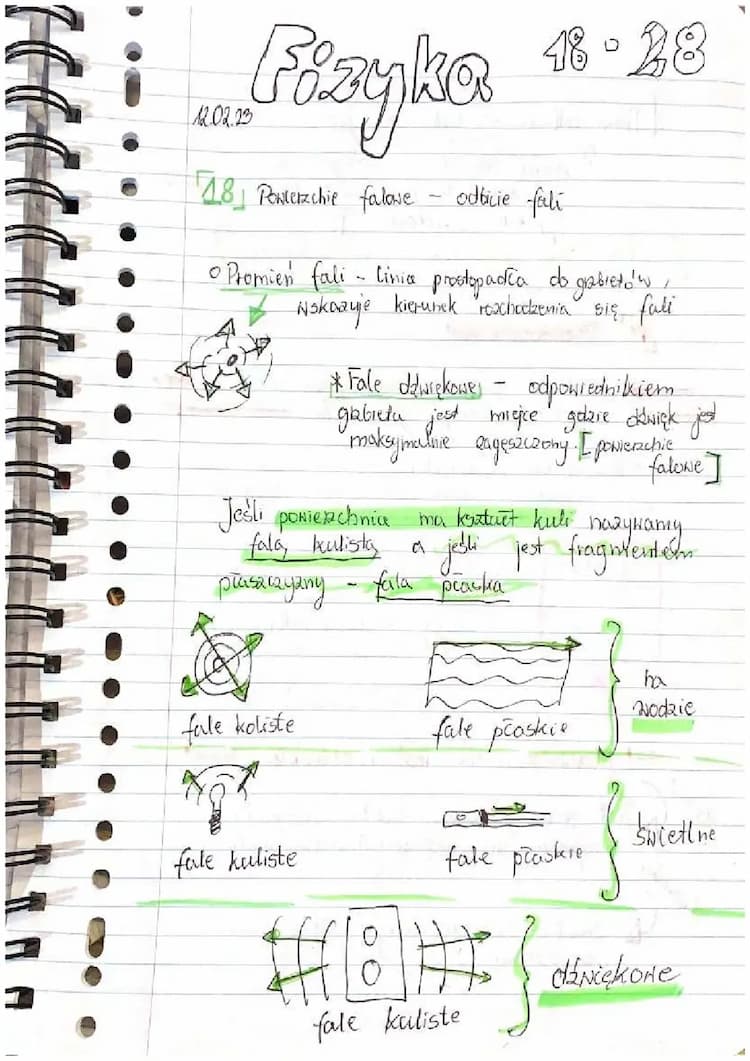 Fizyka 18 - 28
12.02.23
「18」 Powierzchie falowe - odbicie fali
Promień fali - linia prostopadła do grzbietów,
wskazuje kierunek rozchodzenia się fali
* Fale dźwiękowe - odpowiednikiem
grzbietu jest miejce gdzie dźwięk jest
maksymalnie zagęszczony. [powierzchie
falowe]
Jeśli powierzchnia ma kształt kuli nazywamy
falą kulistą a jeśli jest fragmentem
płaszczyzny - fala płaska
na
wodzie
fale koliste fale płaskie
świetlne
fale kuliste fale płaskie
dźwiękowe
fale kuliste